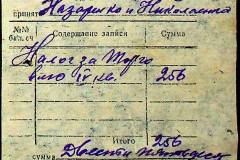 Принят Назаренко и Николаенко
№№ бал. сч. Содержание записи Сумма
Налог за торго
влю IV кв. 256
Итого 256
сумма Двести пятьдесят